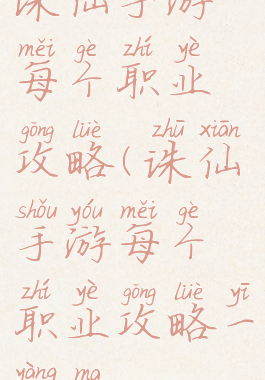 诛仙手游
měi gè zhí yè
每个职业
gōng lüè zhū xiān
攻略(诛仙
shǒu yóu měi gè
手游每个
zhí yè gōng lüè yī
职业攻略一
yàng ma